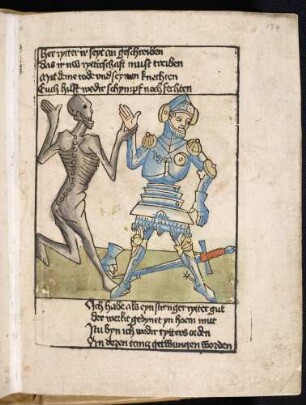 Her rytter ir seyt an geschreiben
Das ir nw rytterschaft must treiben
Mit deme tode vnd seynen knechten
Euch hilft wedir schympf noch fechten
Ich habe als eyn strenger rytter gut
der werlt gedynet yn hoem mut
Nu byn ich wedir rytters orden
An dezen tancz getwungen worden